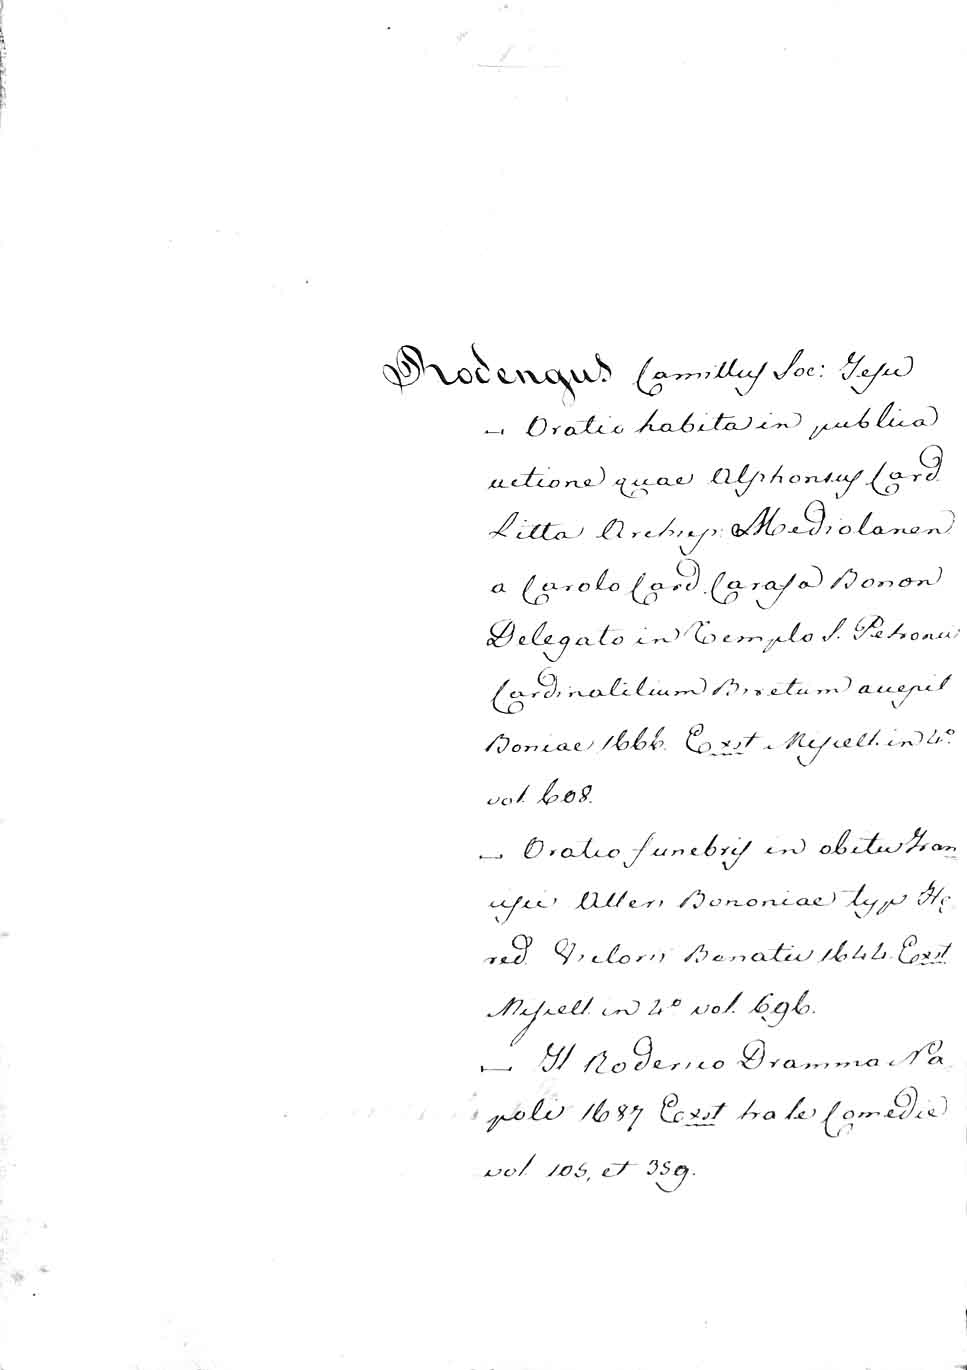 Rodengus Camillus Soc: Jesu
— Oratio habita in publica
actione quae Alphonsus Card.
Litta Archiep: Mediolanen
a Carolo Card. Carafa Bonon
Delegato in Templo S. Petronii
Cardinalitium Biretum accepit
Boniae 1666. Exst Miscell. in 4.º
vol. 608.
— Oratio funebris in obitu Fran
cisci Alteri Bononiae typ He
red. Victorii Benatii 1644. Exst
Miscell. in 4.º vol. 696.
— Il Roderico Dramma Na
poli 1687 Exst tra le Comedie
vol. 105, et 359.